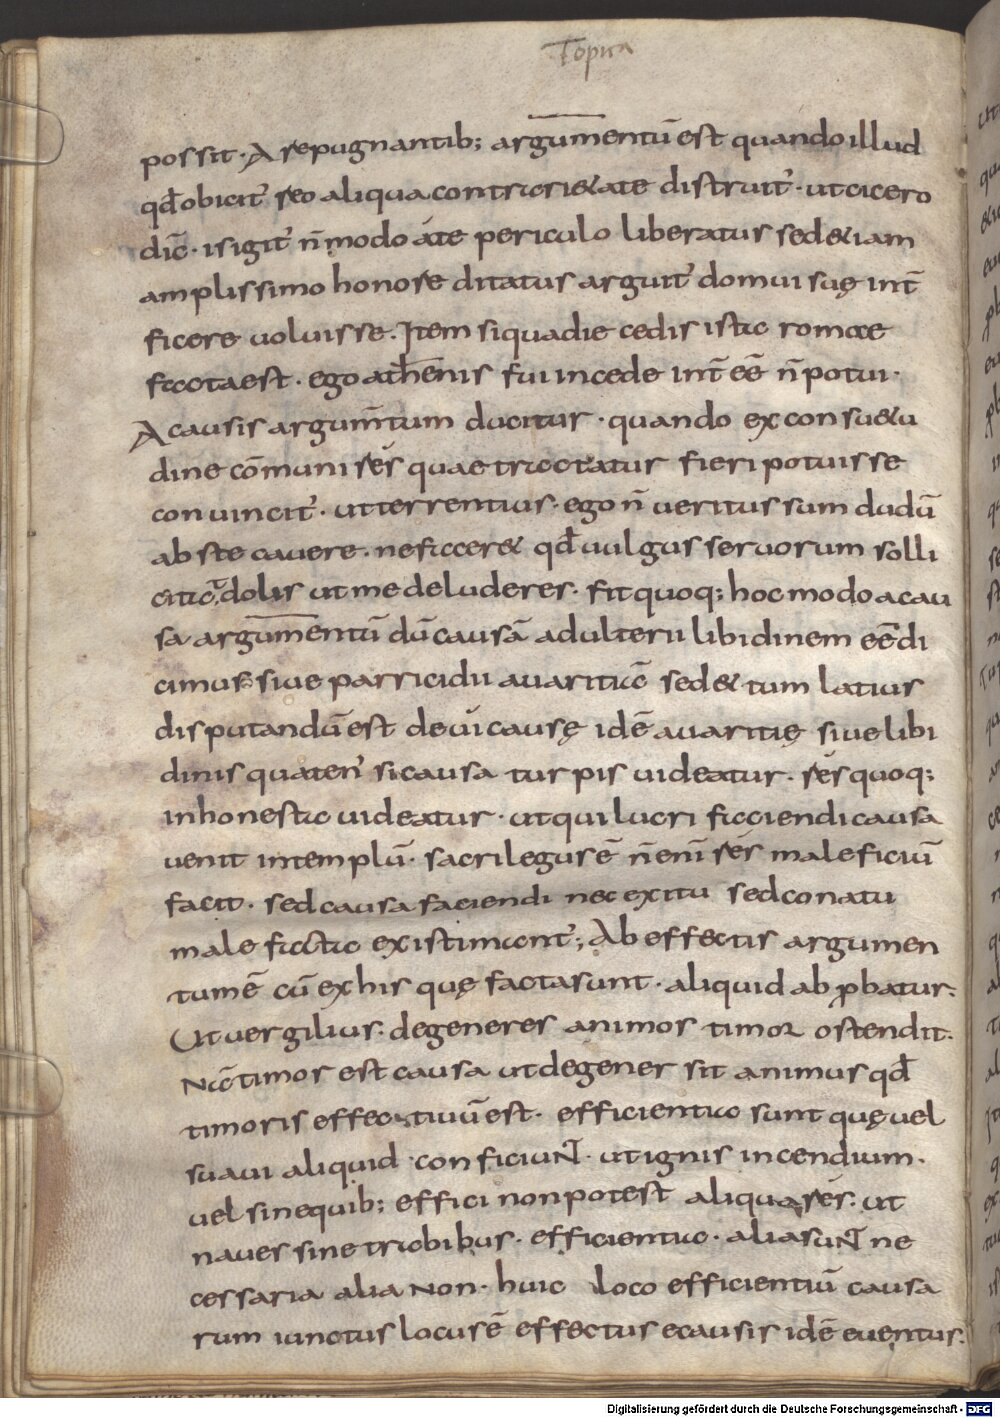 Topica
possit. A repugnantib; argumentū est quando illud
qđ obicit̉ reo aliqua contrari&ate distruit̉. ut cicero
dic̄. is igit̉ n̄ modo a te periculo liberatus sed &iam
amplissimo honore ditatus arguit̉ domui suę int̄
ficere uoluisse. Item si qua die cedis ista romae
facta est. ego athenis fui in cede int̄ee n̄ potui.
A causis argum̄tum ducitur. quando ex consu&u
dine cōmuni res quae tractatur fieri potuisse
conuincit̉. ut terrentius. ego n̄ ueritus sum dudū
abs te cauere. ne facer& qđ uulgus seruorum soll
ci dolis ut me deluderes. fit quoq; hoc modo a cau
sa argumentū dū causā adulterii libidinem ee di
cimus siue parricidii auaritiā sed & tum latius
disputandū est de ui causę idē auaritię siue libi
dinis quaten̉ si causa turpis uideatur. res quoq;
inhonesta uideatur. ut qui lucri faciendi causa
uenit in templū. sacrilegus ē n̄ enī res maleficiū
facit. sed causa faciendi nec exitu sed conatu
malefacta existimant̉; Ab effectis argumen
tum ē cū ex his quę facta sunt. aliquid ab ꝓbatur:
Ut uergilius. degeneres animos timor ostendit.
Nā timor est causa ut degener sit animus qđ
timoris effectiuū est. efficientia sunt quę uel
sua ui aliquid conficiunt. ut ignis incendium.
uel sine quib; effici non potest aliqua res. ut
naues sine trabibus. efficientia. alia sunt ne
cessaria alia non. huic loco efficientiū causa
rum iunctus locus ē effectus e causis idē euentus.
Digitalisierung gefördert durch die Deutsche Forschungsgemeinschaft - DFG